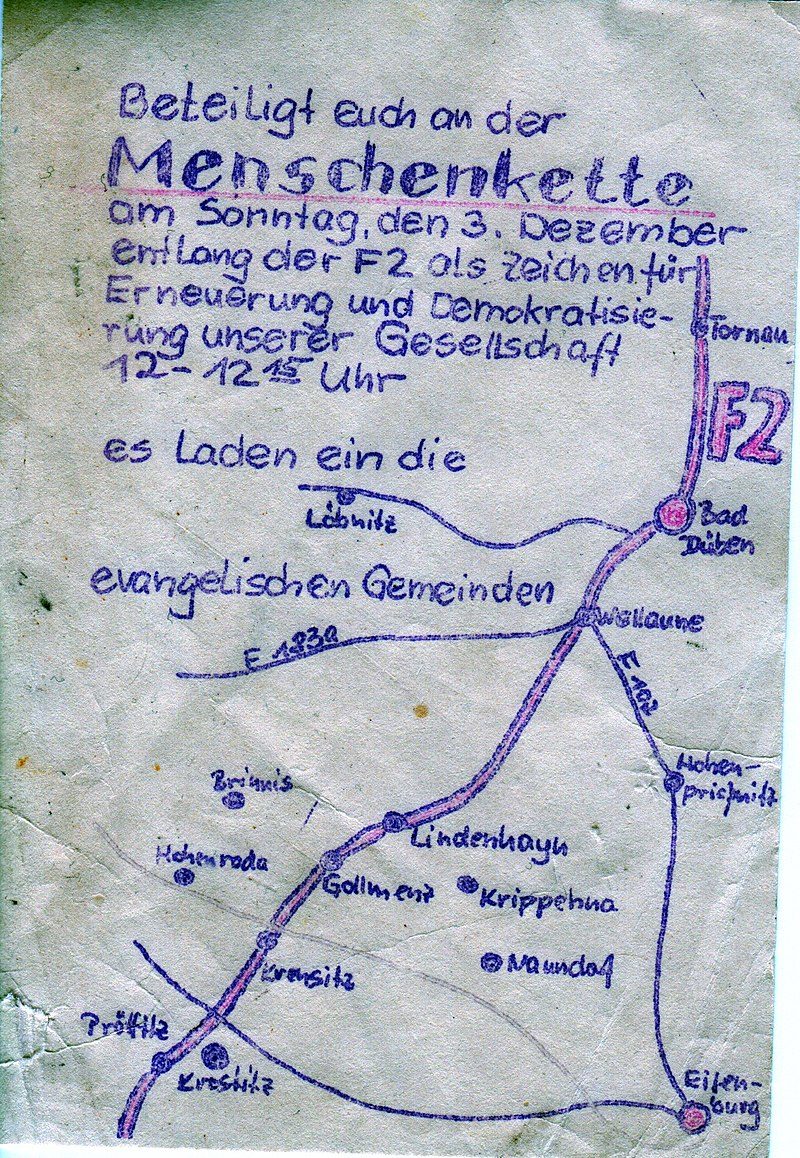 Beteiligt euch an der
Menschenkette
am Sonntag, den 3. Dezember
entlang der F2 als Zeichen für
Erneuerung und Demokratisie-
rung unserer Gesellschaft
12 - 12 15 Uhr
Tornau
F2
es laden ein die
Löbnitz
Bad
Düben
evangelischen Gemeinden
Wellaune
F 183a
F 107
Hohen-
prießnitz
Brinnis
Lindenhayn
Hohenroda
Gollmenz
Krippehna
Naundorf
Krensitz
Pröttitz
Krostitz
Eilen-
burg